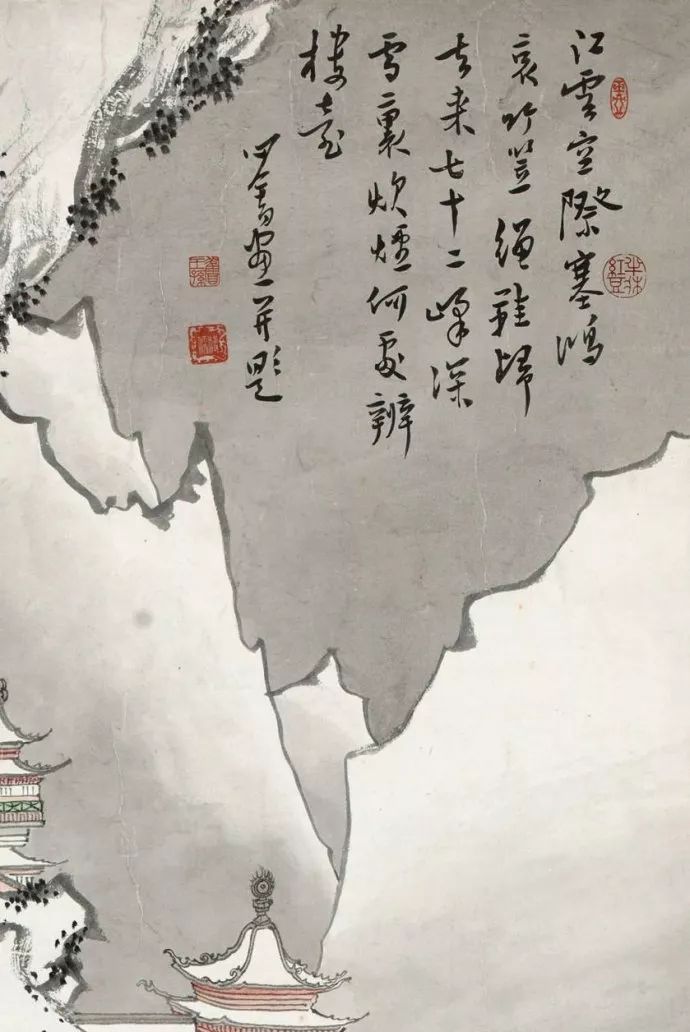 江雲空際塞鴻
哀竹笠繩鞋歸
去来七十二峰深
雪裏炊煙何處辨
樓臺
心畬畫并題
舊王孫